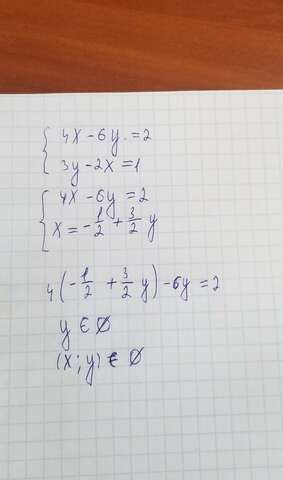 4x - 6y = 2
3y - 2x = 1
4x - 6y = 2
x = -1/2 + 3/2 y
4(-1/2 + 3/2 y) - 6y = 2
y ∈ ∅
(x; y) ∈ ∅